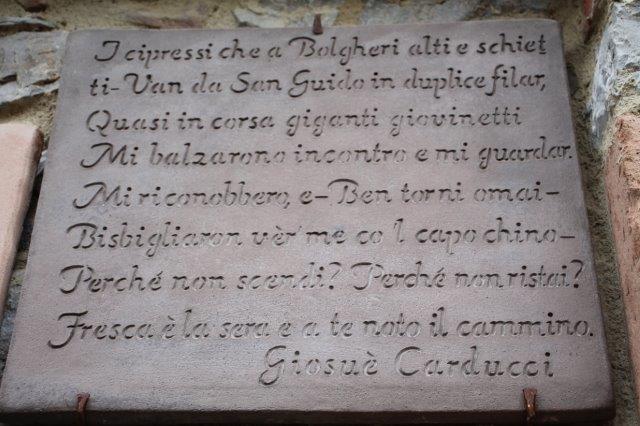 I cipressi che a Bolgheri alti e schiet
ti-Van da San Guido in duplice filar,
Quasi in corsa giganti giovinetti
Mi balzarono incontro e mi guardar.
Mi riconobbero, e-Ben torni omai-
Bisbigliaron vèr' me co 'l capo chino-
Perché non scendi? Perché non ristai?
Fresca è la sera e a te noto il cammino.
Giosuè Carducci